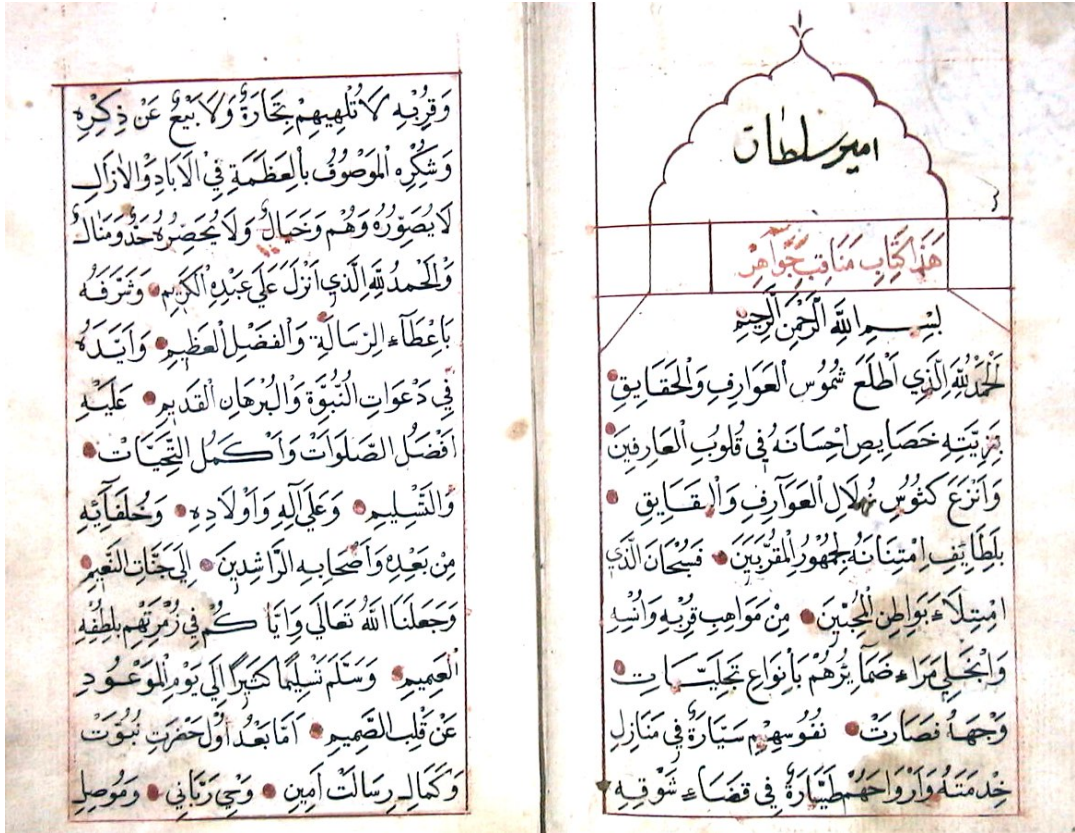 امير سلطان
هَذَا كِتَابِ مَنَاقِبِ جَوَاهِر
بِسْــــمِ اللهِ الرَّحْمنِ الرَّحِيمِ
اَلْحَمْدُ لِلّٰهِ الَّذِي اَطْلَعَ شُمُوسَ الْعَوَارِفِ وَالْحَقَايِقِ
بِمَزِيَّتِهِ خَصَايِصِ اِحْسَانَهُ فِي قُلُوبُ الْعَارِفِينَ
وَاَنْزَعَ كَئُوسُ زُلَالِ الْعَوَآرِفِ وَالْـقَـايِقِ
بِلَطَايِفِ اِمْتِنَانَهُ لِجُمْهُورِ الْمُقَرَّبِينَ فَسُبْحَانَ الَّذِي
امْتِلَاءَ بَوَاطِنَ الْمُحِبّينَ مِنْ مَوَاهِبِ قُرْبِهِ وَاُنْسِهِ
وَانْجَلِي مَرَاءَ ضَمَايُرُهُمْ بِاَنْوَاعِ تَجَلِّيَّــاتِ
وَجْهَهُ فَصَارَتْ نُفُوسِهِمِ سَيَّارَةٌ فِي مَنَازِلِ
خِدْمَتَهُ وَاَرْوَاحَهُمْ طَيَّارَةٌ فِي قَضَاءِ شَوْقِهِ
وَقِرُبِهِ لَا تُلْهِيهِمْ تِجَارَةٌ وَلَا بَيْعٌ عَنْ ذِكْرِهِ
وَشَكْرِهِ الْمَوْصُوفُ بالْعَظَمَةِ فِي الْاٰبَادِ وَالْاٰزَالِ
لَا يُصَوِّرُهُ وَهُمْ وَخَيَالٌ وَلَا يُحَضِرُهُ حَدٌّ وَمَنَالٌ
وَالْحَمْدُ لِلّٰهِ الَّذِي اَنْزَلَ عَلَي عَبْدِهِ الْكَرِيمِ وَشَرَّفَهُ
بَاِعْطَآءِ الرِّسَالَةِ وَالْفَضْلِ الْعَظِيمِ وَاَيَّدَهُ
فِي دَعْوَاتِ النُّبُوَّةِ وَالْبُرْهَانِ الْقَدِيمِ عَلَيْهِ
اَفْضَلُ الصَّلَوَاتْ وَاَكْمَلُ التَّحِيَّاتْ
وَالتَّسْلِيمِ وَعَلَي آلِهِ وَاَوْلَادِهِ وَخُلَفَآئِهِ
مِنْ بَعْدِهِ وَاَصْحَابِهِ الرَّاشِدِينَ اِلَي جَنَّاتِ النَّعِيمِ
وَجَعَلَنَا اللهُ تَعَالَي وَاِيَّاكُمْ فِي زُمْرَتِهِمْ بِلُطْفِهِ
الْعَمِيمِ وَسَلَّمَ تَسْلِيمًا كَثِيرًا اِلَي يَوْمِ الْمَوْعُودِ
عَنْ قَلْبِ الصَّمِيمِ اَمَّا بَعْدُ اَوَّلْ حَضْرَتِ نُبُوَّتْ
وَكَمَالِ رِسَالَتْ اَمِينِ وَحْيِ رَبَّانِي وَمُوصِلِ